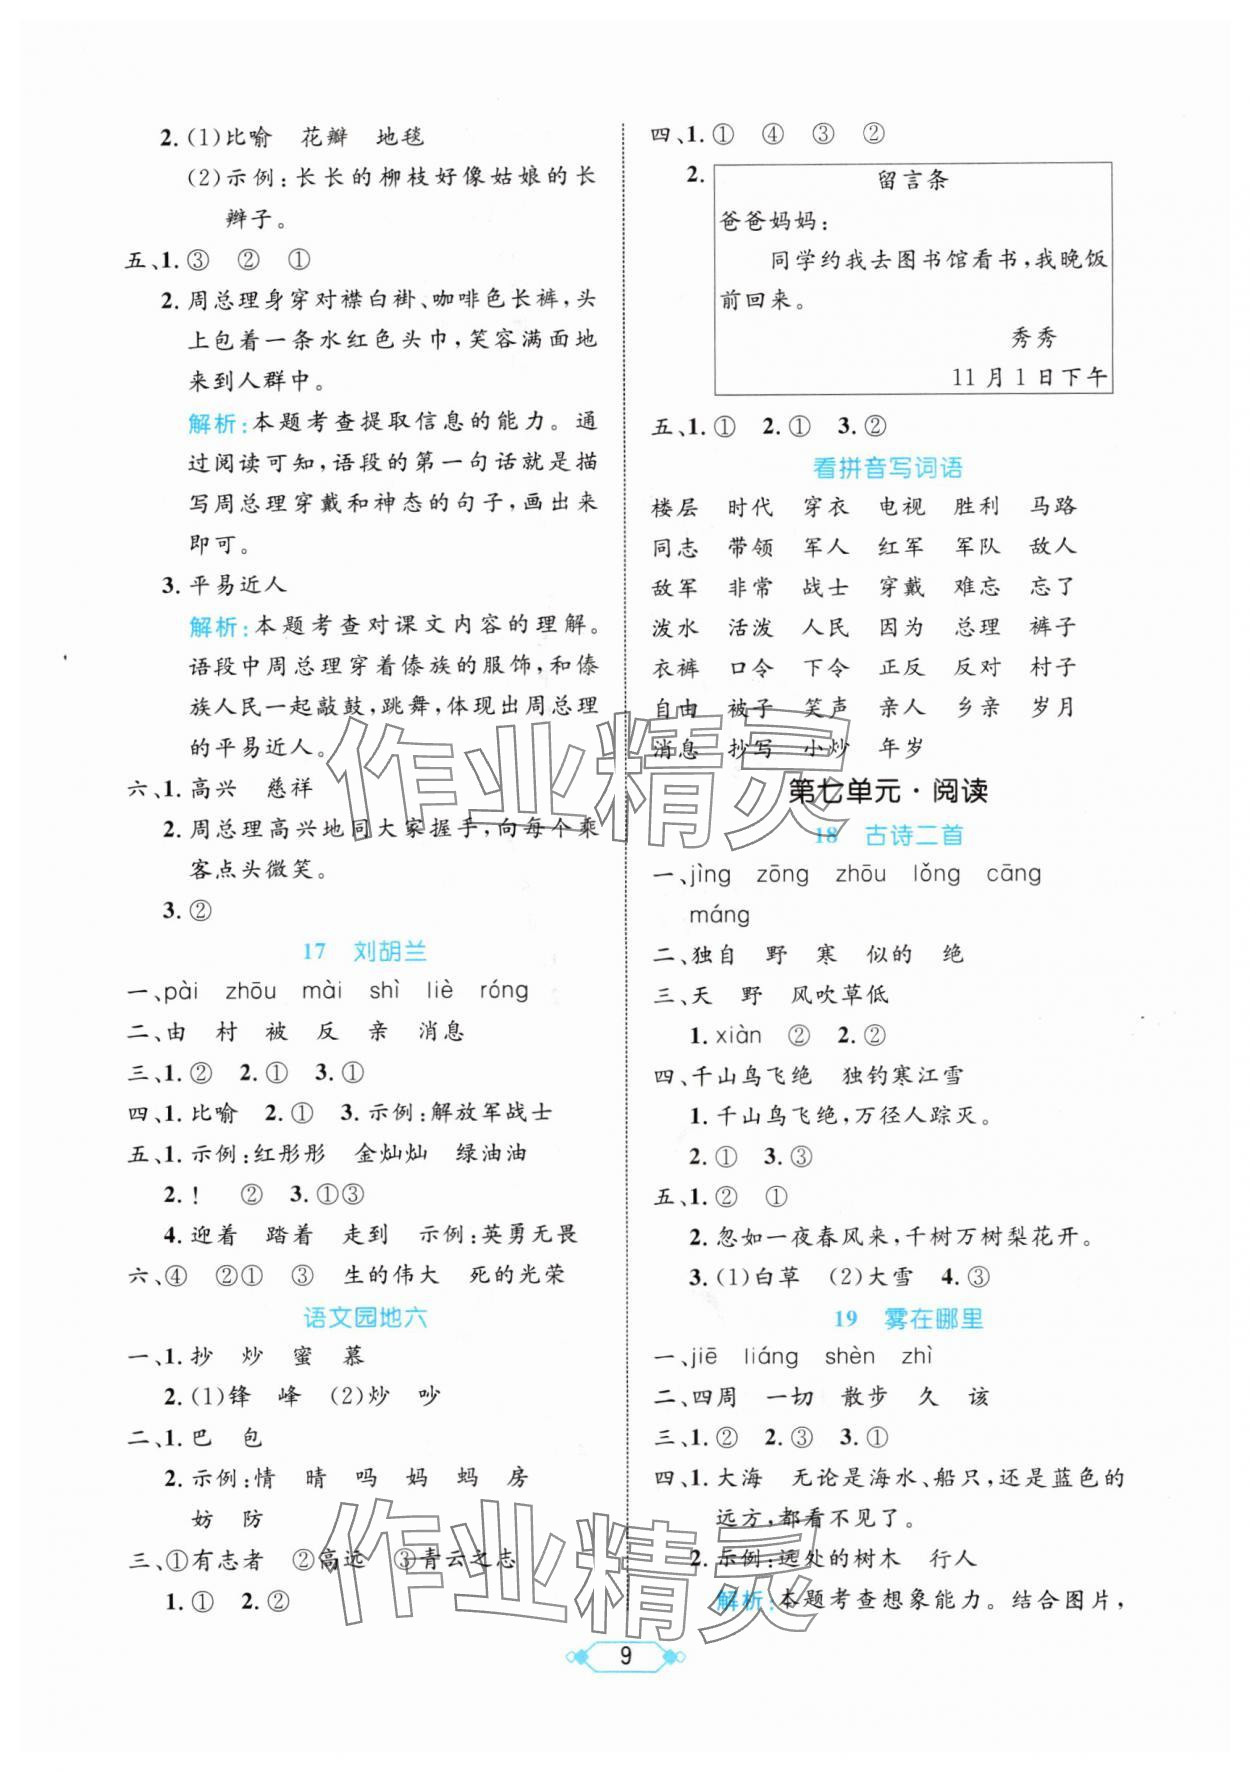 2. (1)比喻　花瓣　地毯
(2)示例:长长的柳枝好像姑娘的长
辫子。
五、1. ③　②　①
2. 周总理身穿对襟白褂、咖啡色长裤,头
上包着一条水红色头巾,笑容满面地
来到人群中。
解析:本题考查提取信息的能力。通
过阅读可知,语段的第一句话就是描
写周总理穿戴和神态的句子,画出来
即可。
3. 平易近人
解析:本题考查对课文内容的理解。
语段中周总理穿着傣族的服饰,和傣
族人民一起敲鼓,跳舞,体现出周总理
的平易近人。
六、1. 高兴　慈祥
2. 周总理高兴地同大家握手,向每个乘
客点头微笑。
3. ②
17　刘胡兰
一、pài　zhōu　mài　shì　liè　róng
二、由　村　被　反　亲　消息
三、1. ②　2. ①　3. ①
四、1. 比喻　2. ①　3. 示例:解放军战士
五、1. 示例:红彤彤　金灿灿　绿油油
2. !　②　3. ①③
4. 迎着　踏着　走到　示例:英勇无畏
六、④　②①　③　生的伟大　死的光荣
语文园地六
一、1. 抄　炒　蜜　慕
2. (1)锋　峰　(2)炒　吵
二、1. 巴　包
2. 示例:情　晴　吗　妈　蚂　房
妨　防
三、①有志者　②高远　③青云之志
1. ①　2. ②
四、1. ①　④　③　②
2.
留言条
爸爸妈妈:
同学约我去图书馆看书,我晚饭
前回来。
秀秀
11月1日下午
五、1. ①　2. ①　3. ②
看拼音写词语
楼层　时代　穿衣　电视　胜利　马路
同志　带领　军人　红军　军队　敌人
敌军　非常　战士　穿戴　难忘　忘了
泼水　活泼　人民　因为　总理　裤子
衣裤　口令　下令　正反　反对　村子
自由　被子　笑声　亲人　乡亲　岁月
消息　抄写　小炒　年岁
第七单元·阅读
18　古诗二首
一、jìng　zōng　zhōu　lǒng　cāng
máng
二、独自　野　寒　似的　绝
三、天　野　风吹草低
1. xiàn　②　2. ②
四、千山鸟飞绝　独钓寒江雪
1. 千山鸟飞绝,万径人踪灭。
2. ①　3. ③
五、1. ②　①
2. 忽如一夜春风来,千树万树梨花开。
3. (1)白草　(2)大雪　4. ③
19　雾在哪里
一、jiē　liáng　shèn　zhì
二、四周　一切　散步　久　该
三、1. ②　2. ③　3. ①
四、1. 大海　无论是海水、船只,还是蓝色的
远方,都看不见了。
2. 示例:远处的树木　行人
解析:本题考查想象能力。结合图片,
9
作业精灵
作业精灵